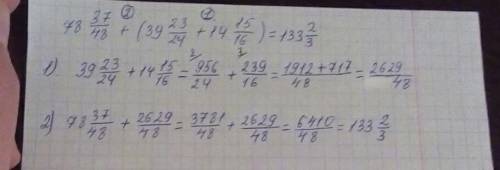 ② ①
78 37/48 + (39 23/24 + 14 15/16) = 133 2/3
1) 39 23/24 + 14 15/16 = 956/24 + 239/16 = 1912 + 717/48 = 2629/48
2) 78 37/48 + 2629/48 = 3781/48 + 2629/48 = 6410/48 = 133 2/3